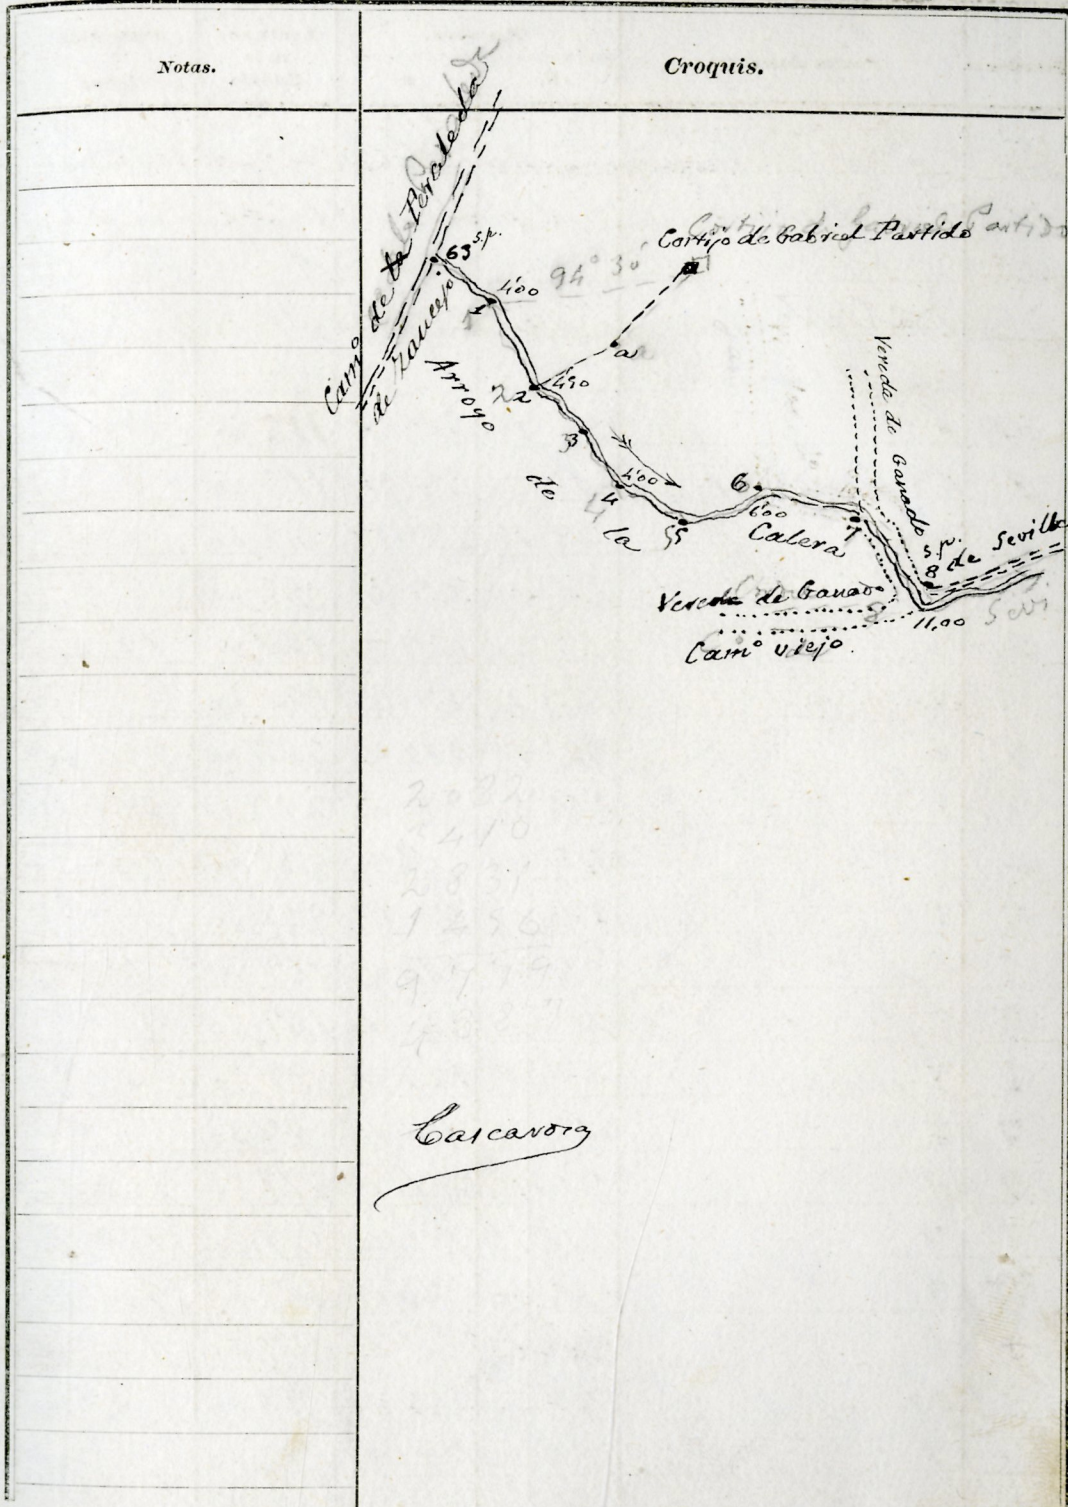 Notas.
Croquis.
Cam.º de la Peraleda
de Zaucejo
63 s.p.
1
4'00
94° 30'
Cortijo de Gabriel Partido
a
2
4'90
Arroyo
3
de
4
4'00
la
5
6
6'00
Calera
7
Vereda de Ganado
s.p.
8
de Sevilla
Vereda de Ganado
11,00
Cam.º viejo.